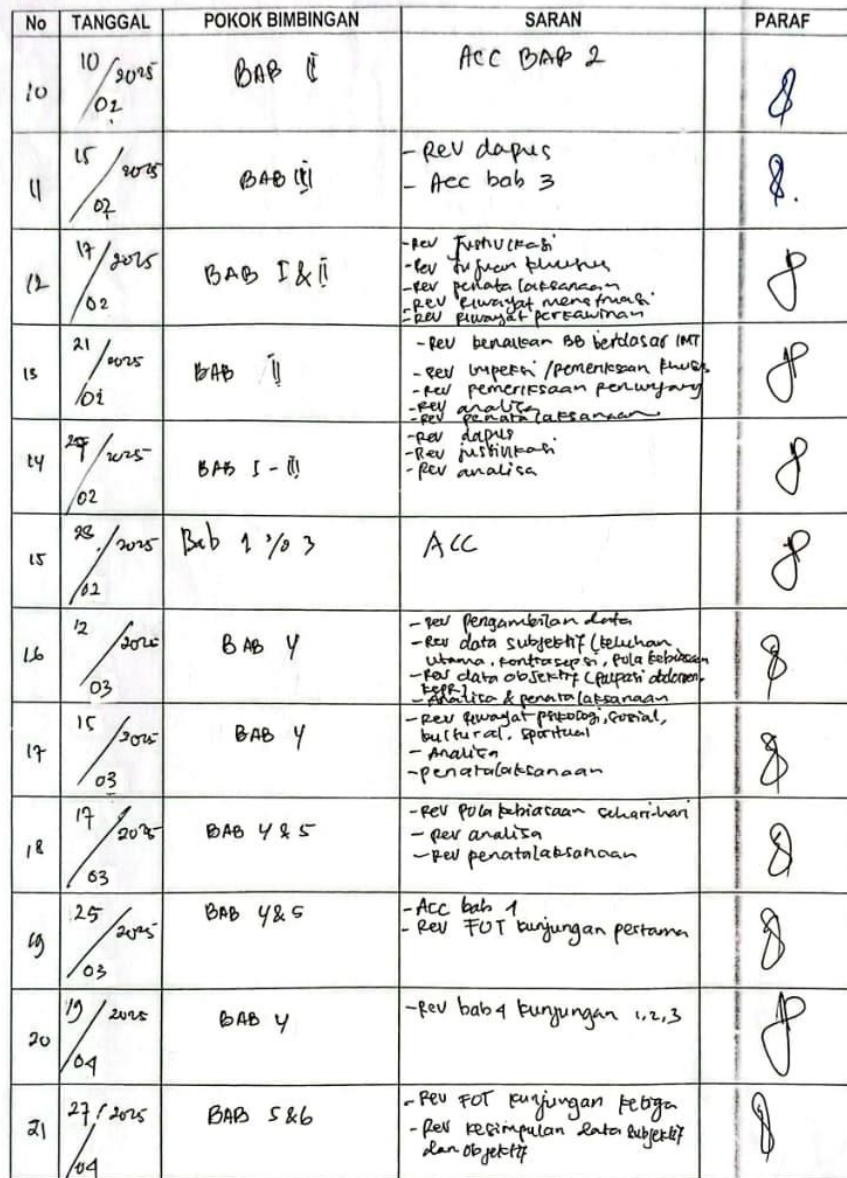 No TANGGAL POKOK BIMBINGAN SARAN PARAF
10 10/02/2025 BAB II ACC BAB 2
11 15/02/2025 BAB III - Rev dapus
- Acc bab 3
12 17/02/2025 BAB I & II - Rev justifikasi
- Rev tujuan khusus
- Rev penatalaksanaan
- Rev riwayat menstruasi
- Rev riwayat perkawinan
13 21/02/2025 BAB II - Rev kenaikan BB berdasar IMT
- Rev inspeksi / pemeriksaan khusus
- Rev pemeriksaan penunjang
- Rev analisa
- Rev penatalaksanaan
14 /02/2025 BAB I - III - Rev dapus
- Rev justifikasi
- Rev analisa
15 28/02/2025 Bab 1 3 ACC
16 12/03/2025 BAB 4 - Rev pengambilan data
- Rev data subjektif (keluhan
utama, kontrasepsi, pola kebiasaan
- Rev data objektif (palpasi abdomen,
- Analisa & penatalaksanaan
17 15/03/2025 BAB 4 - Rev riwayat psikologi, sosial,
kultural, spiritual
- Analisa
- penatalaksanaan
18 17/03/2025 BAB 4 & 5 - Rev pola kebiasaan sehari-hari
- Rev analisa
- Rev penatalaksanaan
19 25/03/2025 BAB 4 & 5 - ACC bab 1
- Rev FOT kunjungan pertama
20 19/04/2025 BAB 4 - Rev bab 4 kunjungan 1,2,3
21 27/04/2025 BAB 5 & 6 - Rev FOT kunjungan ketiga
- Rev kesimpulan data subjektif
dan objektif